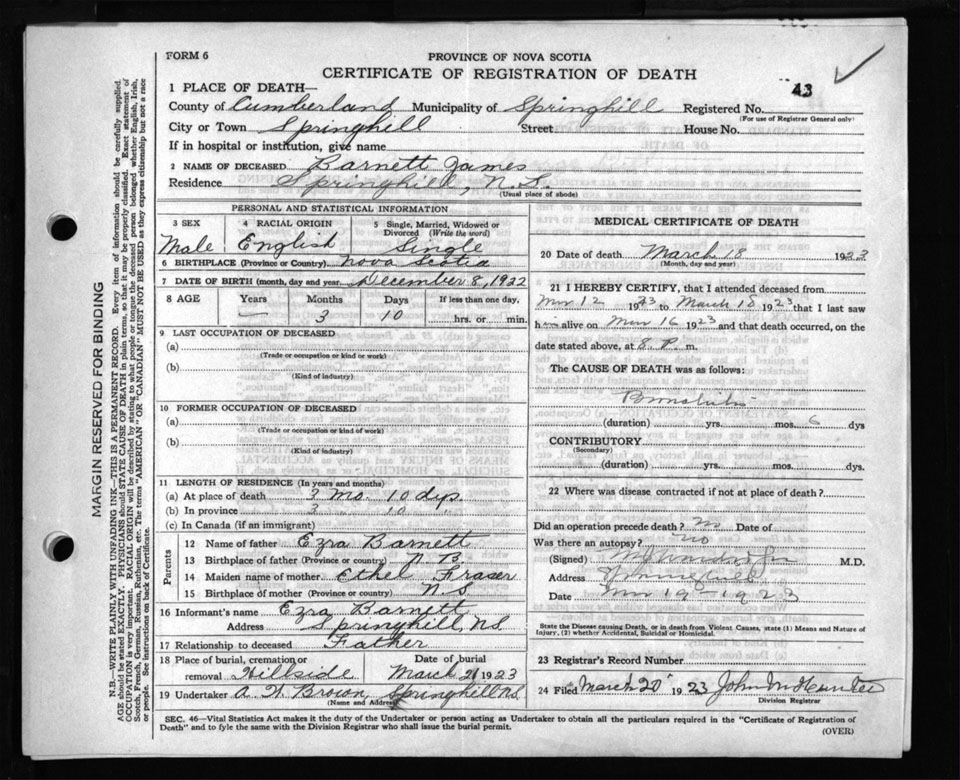 FORM 6
PROVINCE OF NOVA SCOTIA
CERTIFICATE OF REGISTRATION OF DEATH
43
1 PLACE OF DEATH—
County of Cumberland Municipality of Springhill Registered No.
(For use of Registrar General only)
City or Town Springhill Street House No.
If in hospital or institution, give name
2 NAME OF DECEASED Barnett James
Residence Springhill, N.S.
(Usual place of abode)
PERSONAL AND STATISTICAL INFORMATION
3 SEX Male
4 RACIAL ORIGIN English
5 Single, Married, Widowed or Divorced (Write the word) Single
6 BIRTHPLACE (Province or Country) Nova Scotia
7 DATE OF BIRTH (month, day and year) December 8, 1922
8 AGE Years Months Days If less than one day,
— 3 10 hrs. or min.
9 LAST OCCUPATION OF DECEASED
(a)
(Trade or occupation or kind or work)
(b)
(Kind of industry)
10 FORMER OCCUPATION OF DECEASED
(a)
(Trade or occupation or kind of work)
(b)
(Kind of industry)
11 LENGTH OF RESIDENCE (In years and months)
(a) At place of death 3 mo. 10 dys
(b) In province 3 10 "
(c) In Canada (if an immigrant)
Parents
12 Name of father Ezra Barnett
13 Birthplace of father (Province or country) N.B.
14 Maiden name of mother Ethel Fraser
15 Birthplace of mother (Province or country) N.S.
16 Informant's name Ezra Barnett
Address Springhill, N.S.
17 Relationship to deceased Father
18 Place of burial, cremation or removal Hillside Date of burial March 1923
19 Undertaker Brown, Springhill N.S.
(Name and Address)
MEDICAL CERTIFICATE OF DEATH
20 Date of death March 18 1923
(Month, day and year)
21 I HEREBY CERTIFY, that I attended deceased from
Mar 12 1923 to March 18 1923 that I last saw
him alive on Mar 16 1923 and that death occurred, on the
date stated above, at 8 P. m.
The CAUSE OF DEATH was as follows:
Bronchitis
(duration) yrs. mos. 6 dys
CONTRIBUTORY
(Secondary)
(duration) yrs. mos. dys.
22 Where was disease contracted if not at place of death?
Did an operation precede death? no Date of
Was there an autopsy? no
(Signed) M.D.
Address
Date Mar 19 - 1923
State the Disease causing Death, or in death from Violent Causes, state (1) Means and Nature of
Injury, (2) whether Accidental, Suicidal or Homicidal.
23 Registrar's Record Number
24 Filed March 20 1923 John
Division Registrar
SEC. 46—Vital Statistics Act makes it the duty of the Undertaker or person acting as Undertaker to obtain all the particulars required in the "Certificate of Registration of
Death" and to fyle the same with the Division Registrar who shall issue the burial permit.
(OVER)
MARGIN RESERVED FOR BINDING
N.B.—WRITE PLAINLY WITH UNFADING INK—THIS IS A PERMANENT RECORD. Every item of information should be carefully supplied.
AGE should be stated EXACTLY. PHYSICIANS should STATE CAUSE OF DEATH in plain terms, so that it may be properly classified. Exact statement of
OCCUPATION is very important. RACIAL ORIGIN will be described by stating to what people or tongue the deceased person belonged whether English, Irish,
Scotch, French, German, Russian, Ruthenian, etc. The terms "AMERICAN" OR "CANADIAN" MUST NOT BE USED as they express citizenship but not a race
or people. See instructions on back of Certificate.